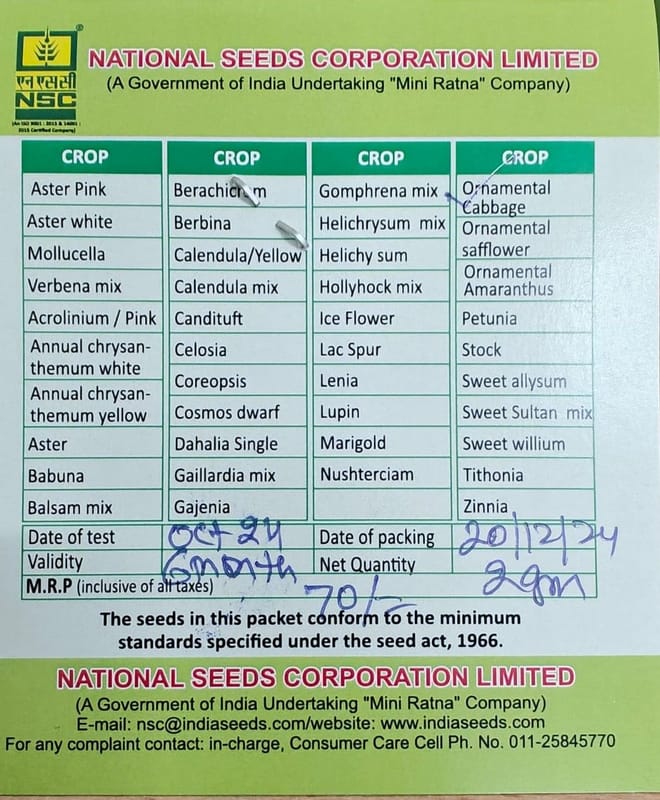 एन एस सी
NSC
(An ISO 9001 : 2015 & 14001 :
2015 Certified Company)
NATIONAL SEEDS CORPORATION LIMITED
(A Government of India Undertaking "Mini Ratna" Company)
CROP CROP CROP CROP
Aster Pink
Aster white
Mollucella
Verbena mix
Acrolinium / Pink
Annual chrysan-
themum white
Annual chrysan-
themum yellow
Aster
Babuna
Balsam mix
Berbina
Calendula/Yellow
Calendula mix
Candituft
Celosia
Coreopsis
Cosmos dwarf
Dahalia Single
Gaillardia mix
Gajenia
Gomphrena mix
Helichrysum mix
Helichy sum
Hollyhock mix
Ice Flower
Lac Spur
Lenia
Lupin
Marigold
Nushterciam
Ornamental
Cabbage
Ornamental
safflower
Ornamental
Amaranthus
Petunia
Stock
Sweet allysum
Sweet Sultan mix
Sweet willium
Tithonia
Zinnia
Date of test Oct 24 Date of packing 20/12/24
Validity 6month Net Quantity 2gm
M.R.P (inclusive of all taxes) 70/-
The seeds in this packet conform to the minimum
standards specified under the seed act, 1966.
NATIONAL SEEDS CORPORATION LIMITED
(A Government of India Undertaking "Mini Ratna" Company)
E-mail: nsc@indiaseeds.com/website: www.indiaseeds.com
For any complaint contact: in-charge, Consumer Care Cell Ph. No. 011-25845770